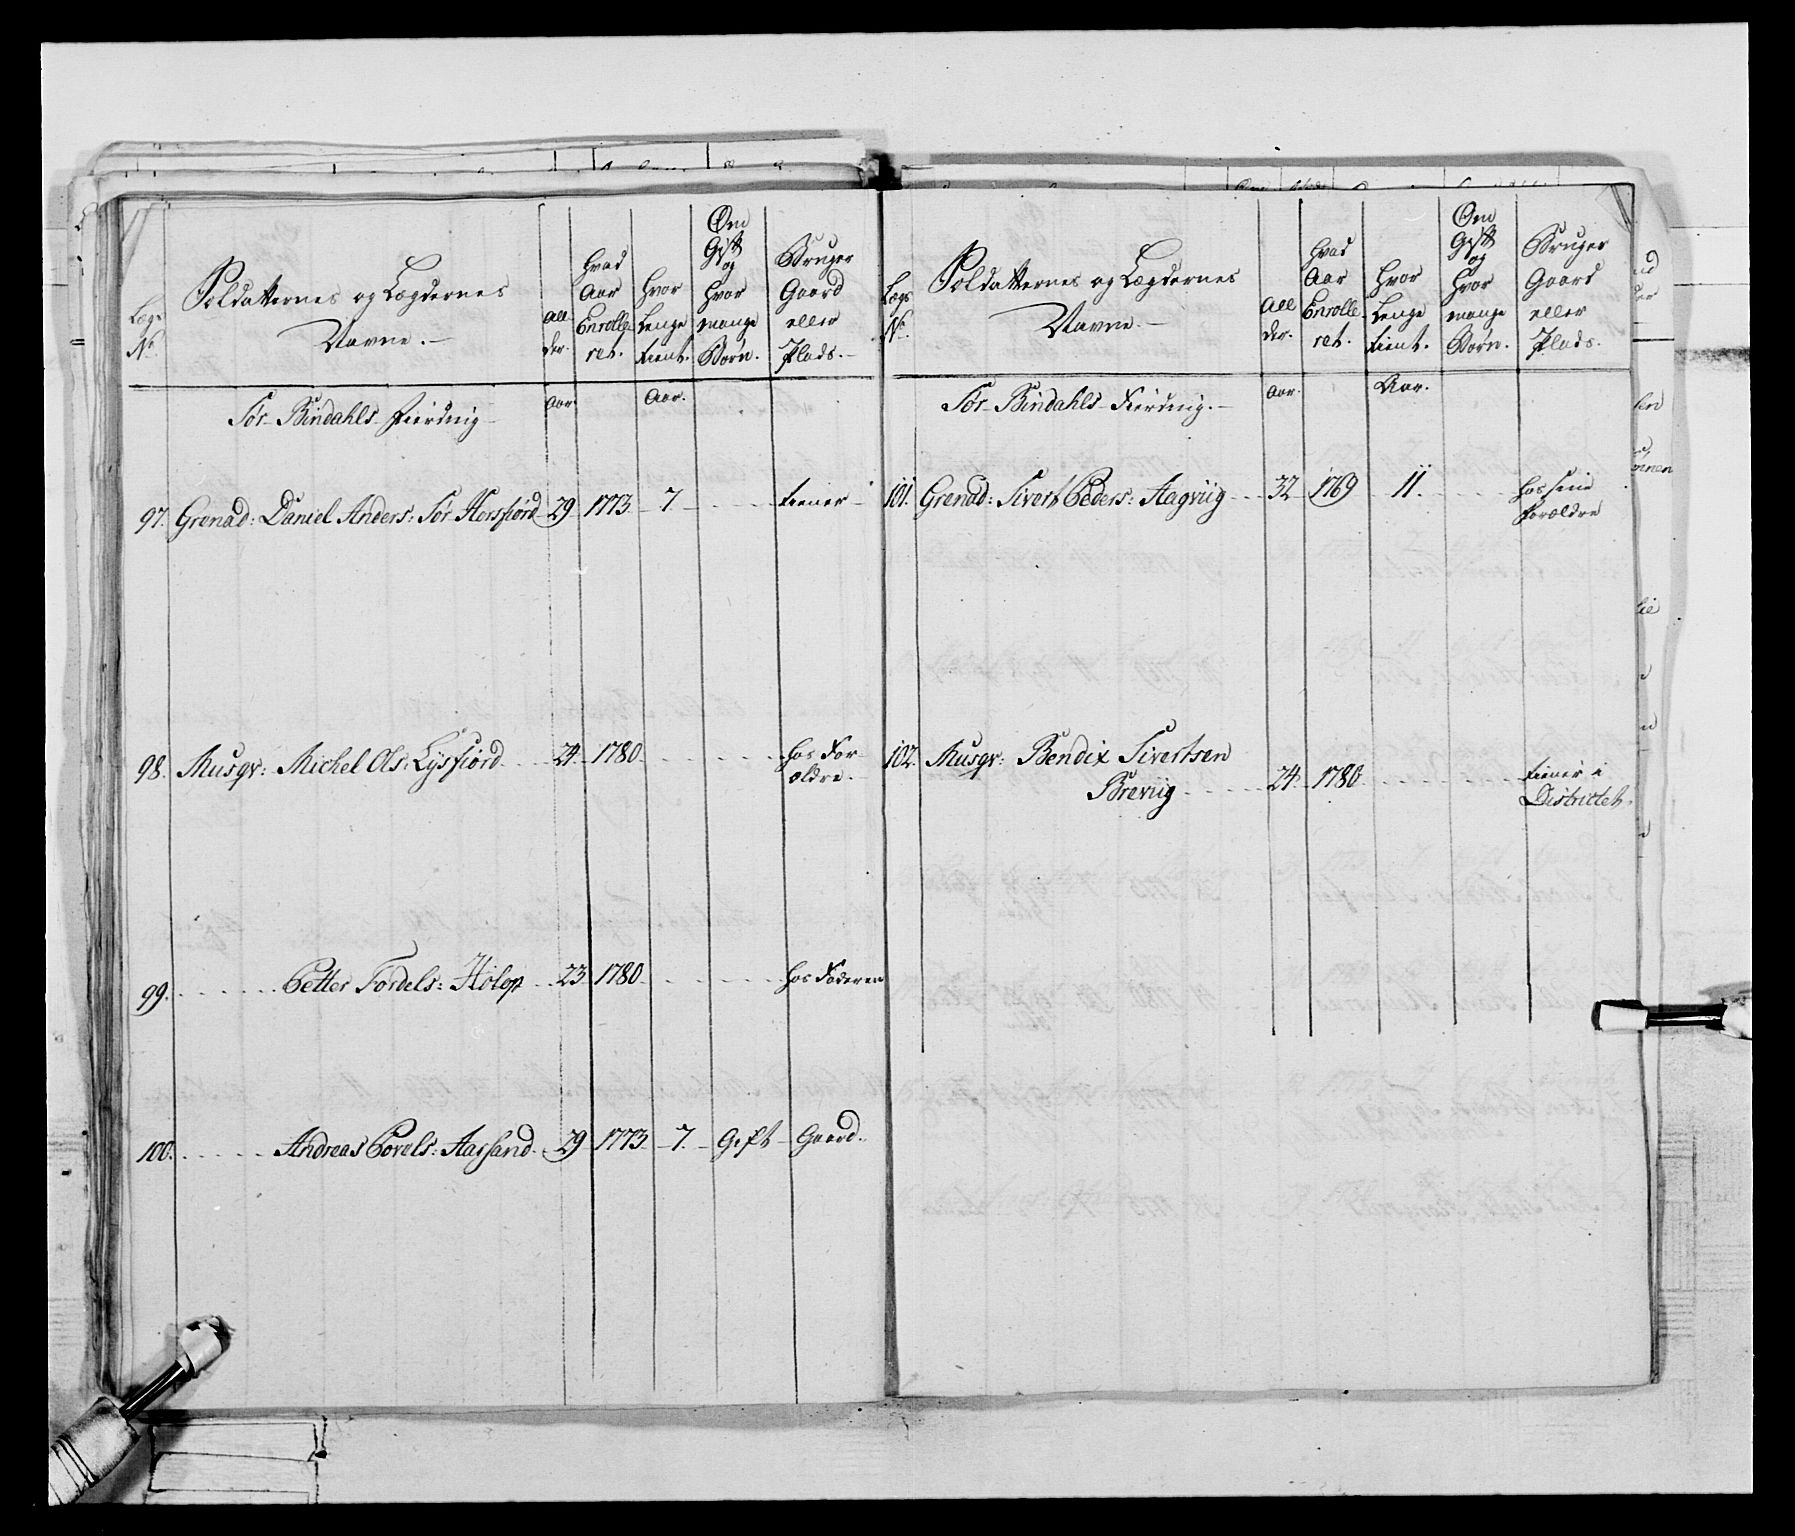 Lægs
No.
Soldatternes og Lægdernes
Navne.
All
der.
Hvad
Aar
Enrolle
ret.
Hvor
Lenge
tient.
Om
Gift
og
hvor
mange
Børn.
Bruger
Gaard
eller
Plads.
Sør-Bindahls-Fierding
Aar
Aar.
97. Grenad: Daniel Anders: Sør Horsfiord 29 1773 7. tiener
98. Musqv: Michel Ols: Lysfiord 24 1780 hos For
ældre
99. Petter Tordels: Holop 23 1780 hos Faderen
100. Andreas Povels: Aarsand 29 1773. 7. Gift Gaard.
Lægs
No.
Soldatternes og Lægdernes
Navne.
All
der.
Hvad
Aar
Enrolle
ret.
Hvor
Lenge
tient.
Om
Gift
og
hvor
mange
Børn.
Bruger
Gaard
eller
Plads.
Sør-Bindahls-Fierding.
Aar.
Aar.
101. Grenad: Sivert Peders: Aagviig 32 1769 11. hos sine
Forældre
102. Musqv: Bendix Sivertsen
Breviig 24 1780 tiener i
Districtet.